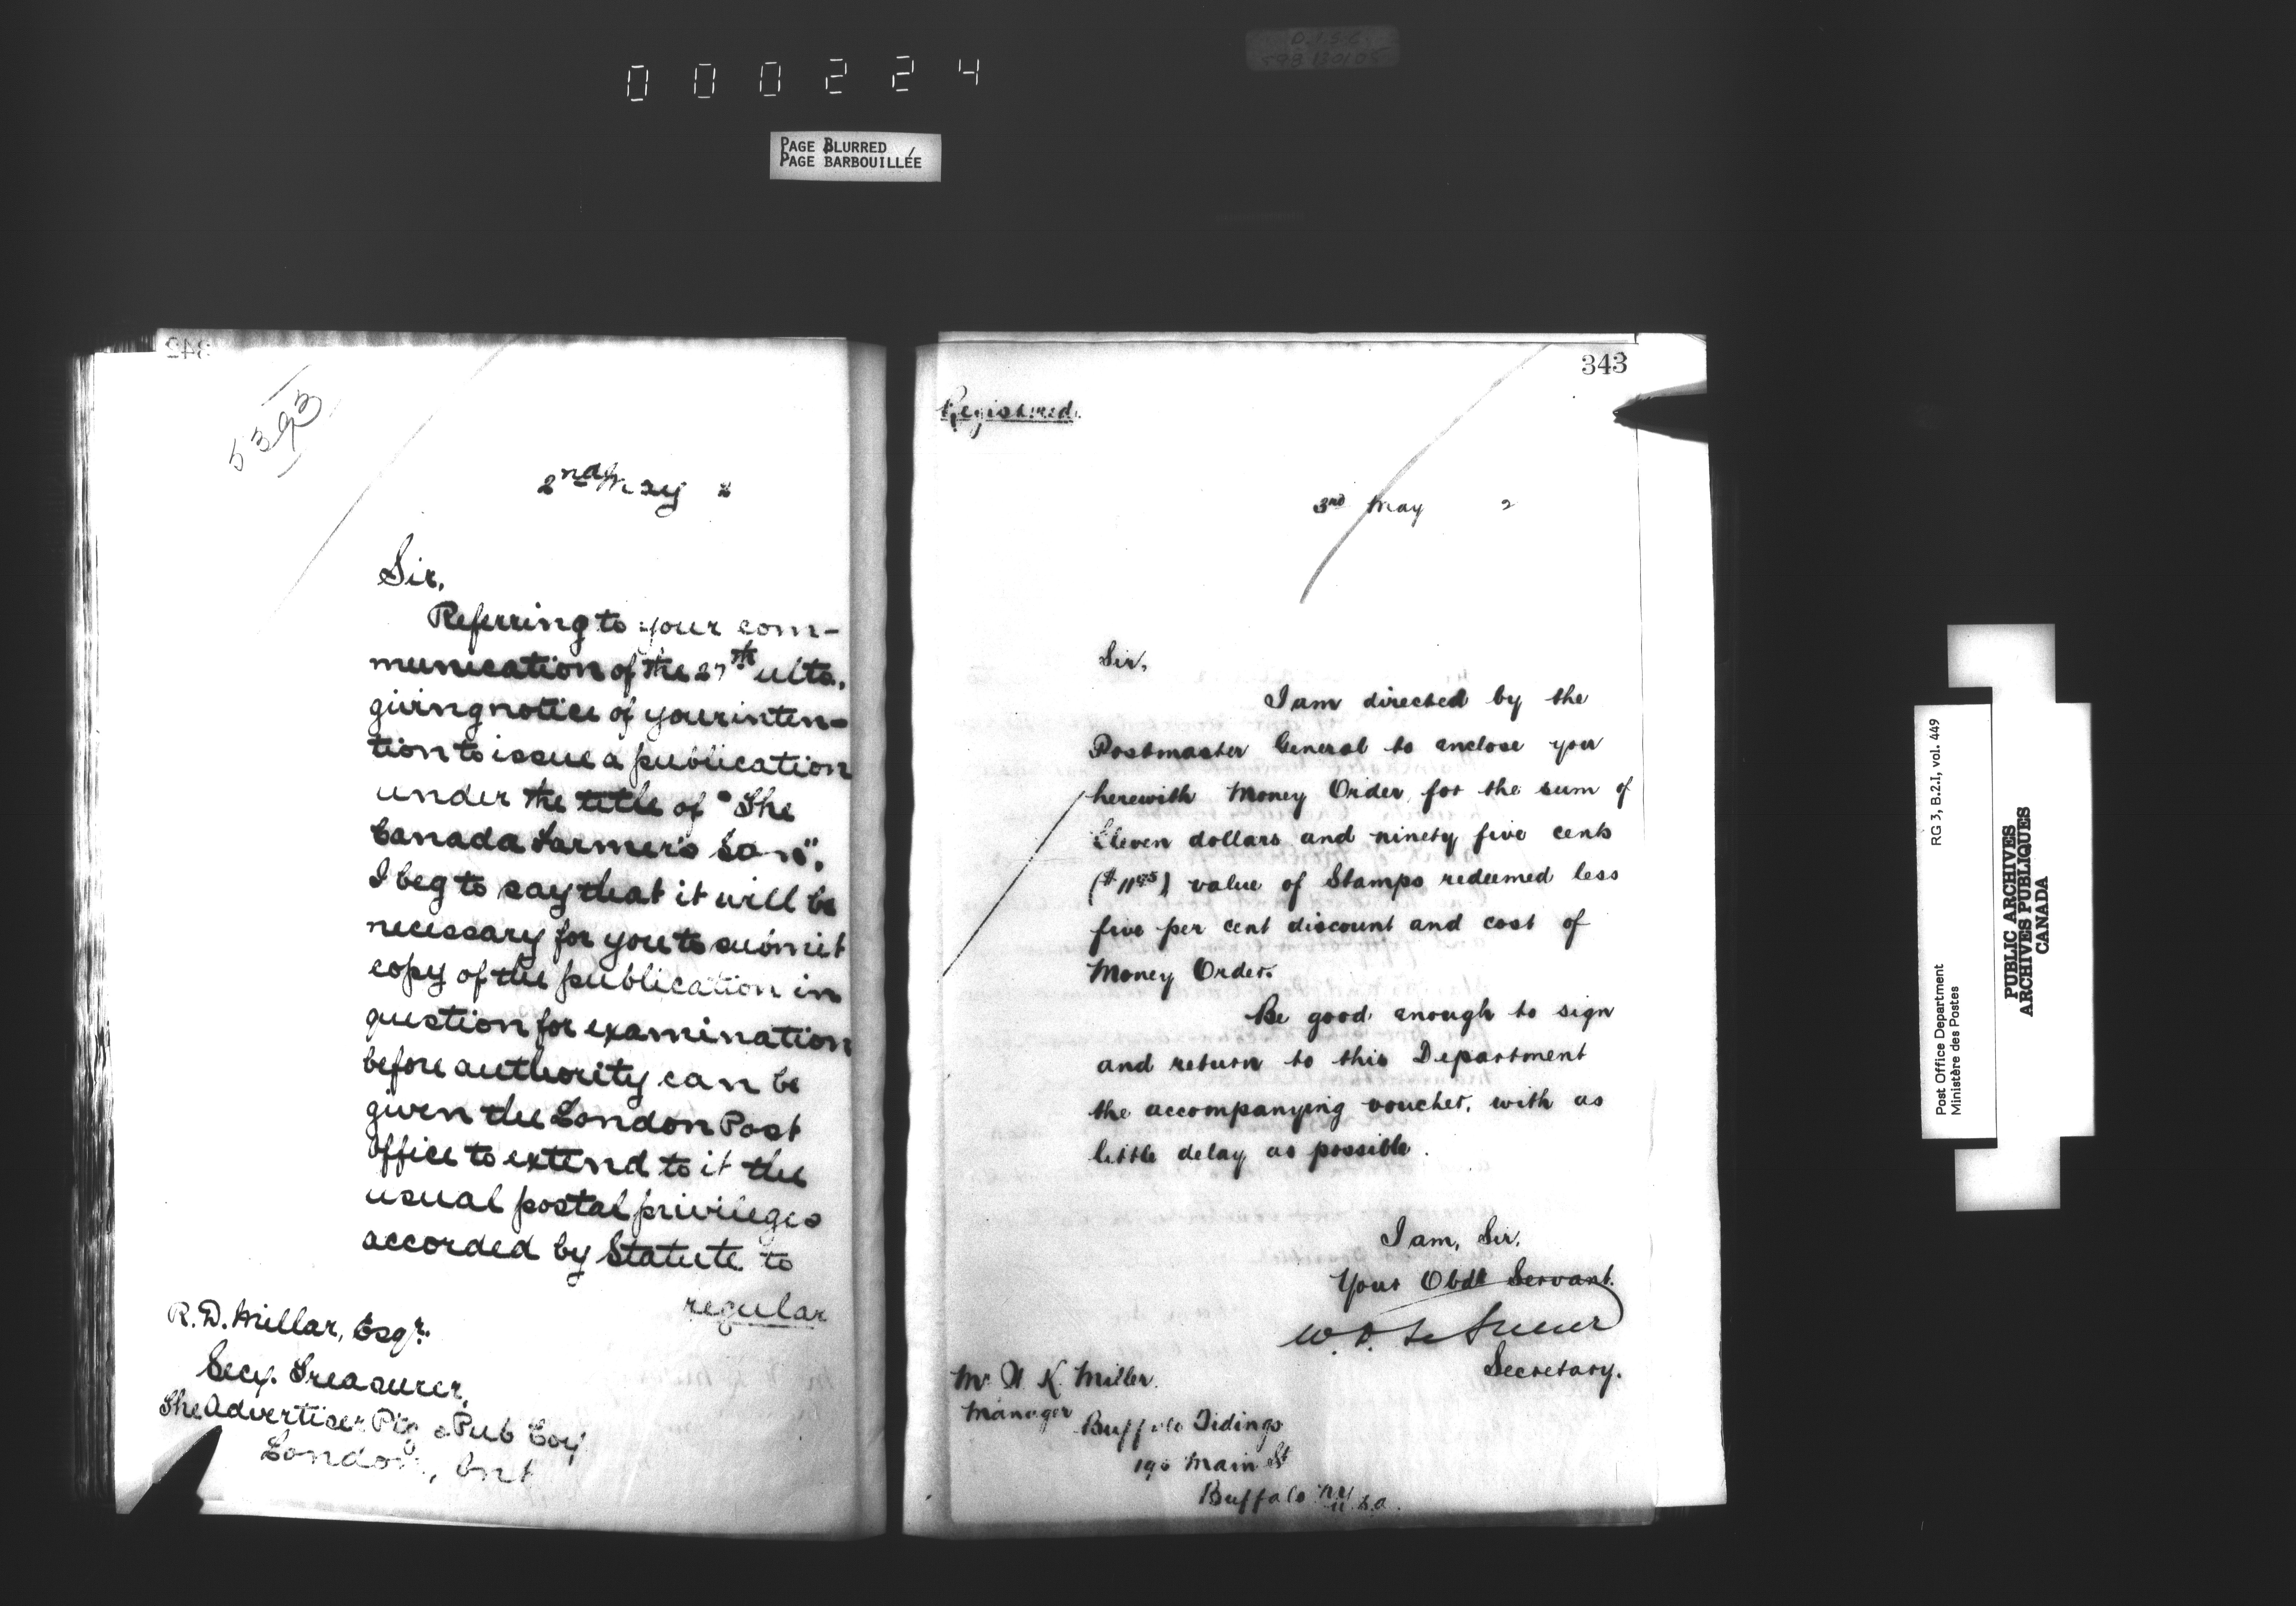 000224
PAGE BLURRED
PAGE BARBOUILLÉE
342
5393
2nd May 2
Sir,
Referring to your com-
munication of the 27th ulto,
giving notice of your inten-
tion to issue a publication
under the title of "The
Canada Farmer's Son",
I beg to say that it will be
necessary for you to submit
copy of the publication in
question for examination
before authority can be
given the London Post
Office to extend to it the
usual postal privileges
accorded by Statute to
regular
R. D. Millar, Esqr.
Secy. Treasurer,
The Advertiser Ptg & Pub Coy
London, Ont
343
Registered.
3rd May 2
Sir,
I am directed by the
Postmaster General to enclose you
herewith Money Order, for the sum of
Eleven dollars and ninety five cents
($11.95) value of Stamps redeemed less
five per cent discount and cost of
Money Order.
Be good enough to sign
and return to this Department
the accompanying voucher, with as
little delay as possible.
I am, Sir,
Your Obdt Servant.
W. D. LeSueur
Secretary.
Mr K. Miller.
Manager
Buffalo Tidings
Main St
Buffalo N.Y
U.S.A.
Post Office Department
Ministère des Postes
RG 3, B.2.I, vol. 449
PUBLIC ARCHIVES
ARCHIVES PUBLIQUES
CANADA